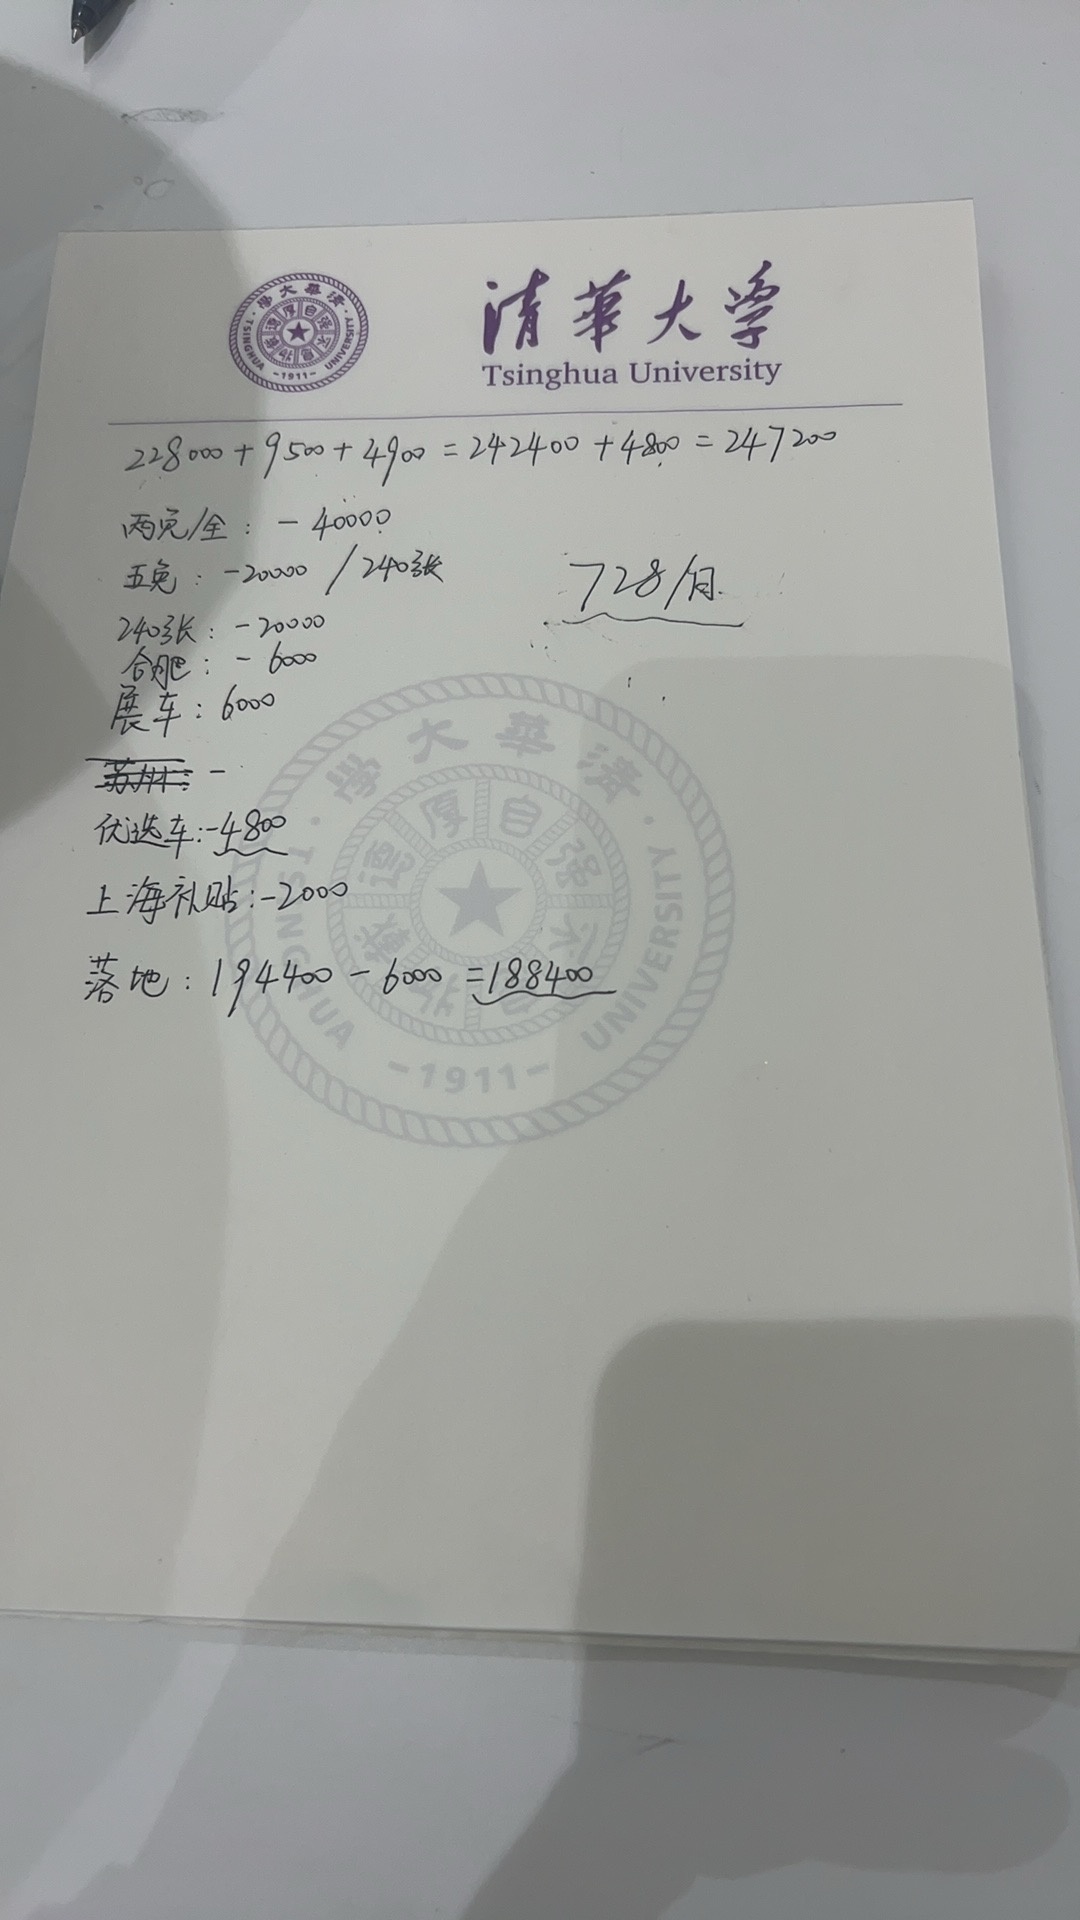 清華大学
Tsinghua University
228000+9500+4900=242400+4800=247200
两免/全：-40000
五免：-20000/240张
728/月
240张：-20000
合肥：-6000
展车：6000
苏州：-
优选车：-4800
上海补贴：-2000
落地：194400-6000=188400
清華大學
TSINGHUA UNIVERSITY
自强不息
厚德載物
-1911-